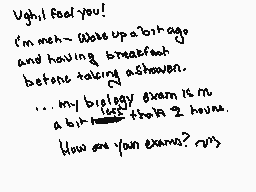 Ugh, I feel you!
I'm meh~ Woke up a bit ago
and having breakfast
before taking a shower.
... my biology exam is in
a bit less than 2 hours.
How are your exams? ~